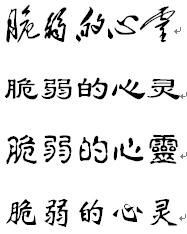 脆弱的心靈
脆弱的心灵
脆弱的心靈
脆弱的心灵